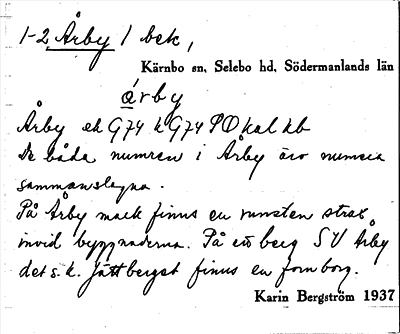 1-2 Årby / bek,
Kärnbo sn, Selebo hd, Södermanlands län
årby
Årby ek G74 h G74 PO kal kb
De båda numren i Årby äro numera
sammanslagna.
På Årby mark finns en runsten strax
invid byggnaderna. På ett berg SV Årby
det s.k. Jättberget finns en fornborg.
Karin Bergström 1937